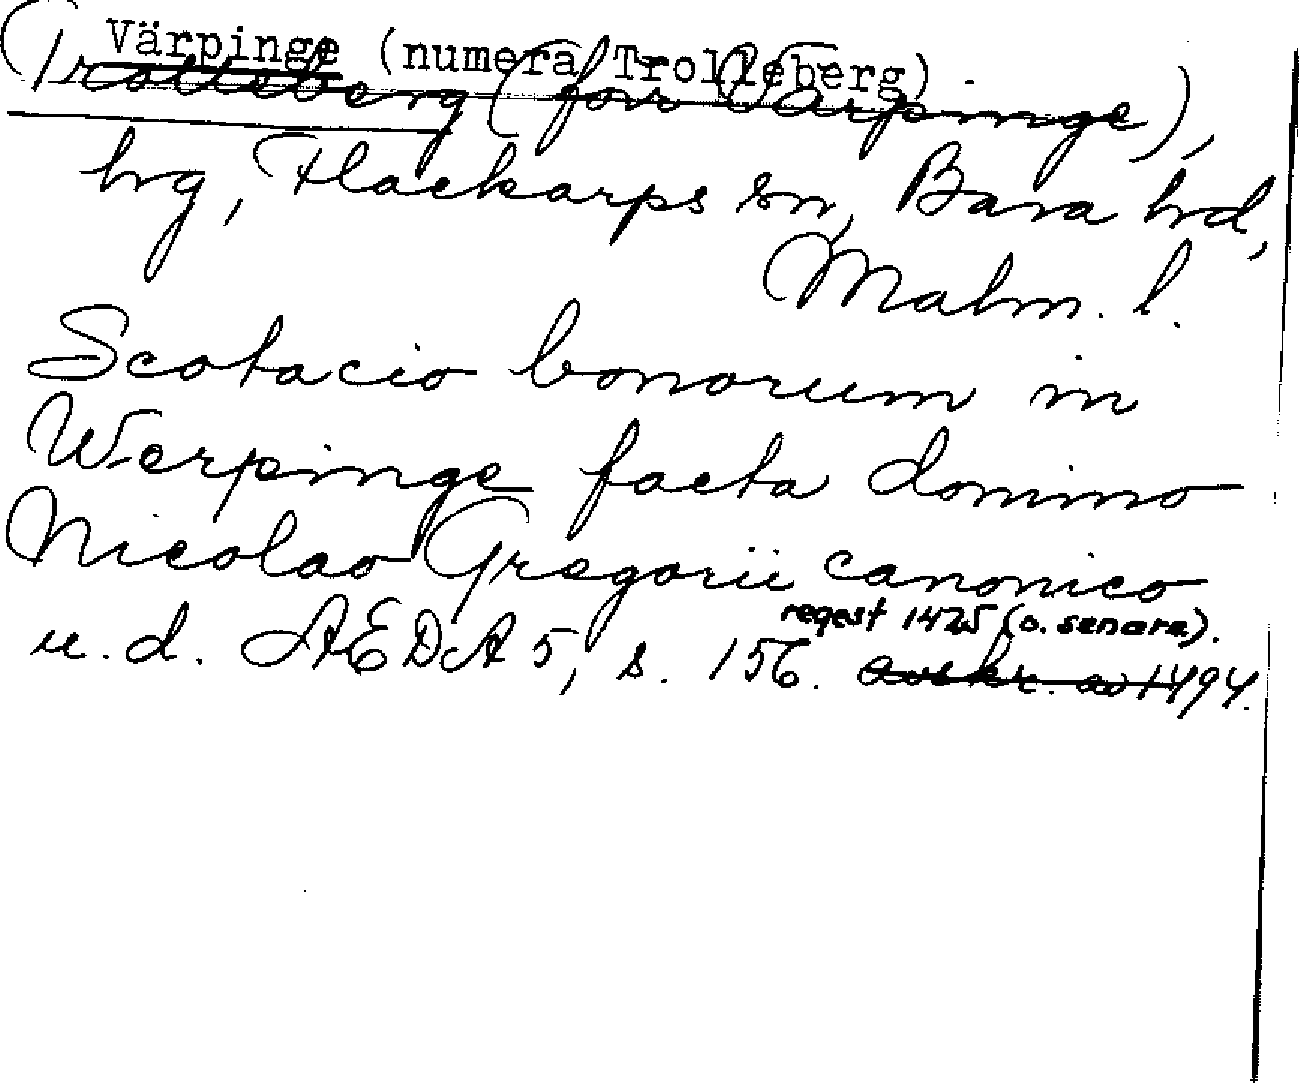 Värpinge (numera Trolleberg)
Trolleberg (förr Värpinge),
hrg, Flackarps sn, Bara hrd,
Malm. l.
Scotacio bonorum in
Werpinge facta domino
Nicolao Gregorii canonico
regest 1425 (o. senare).
u. d. ÆDA 5, s. 156. avskr. av 1494.